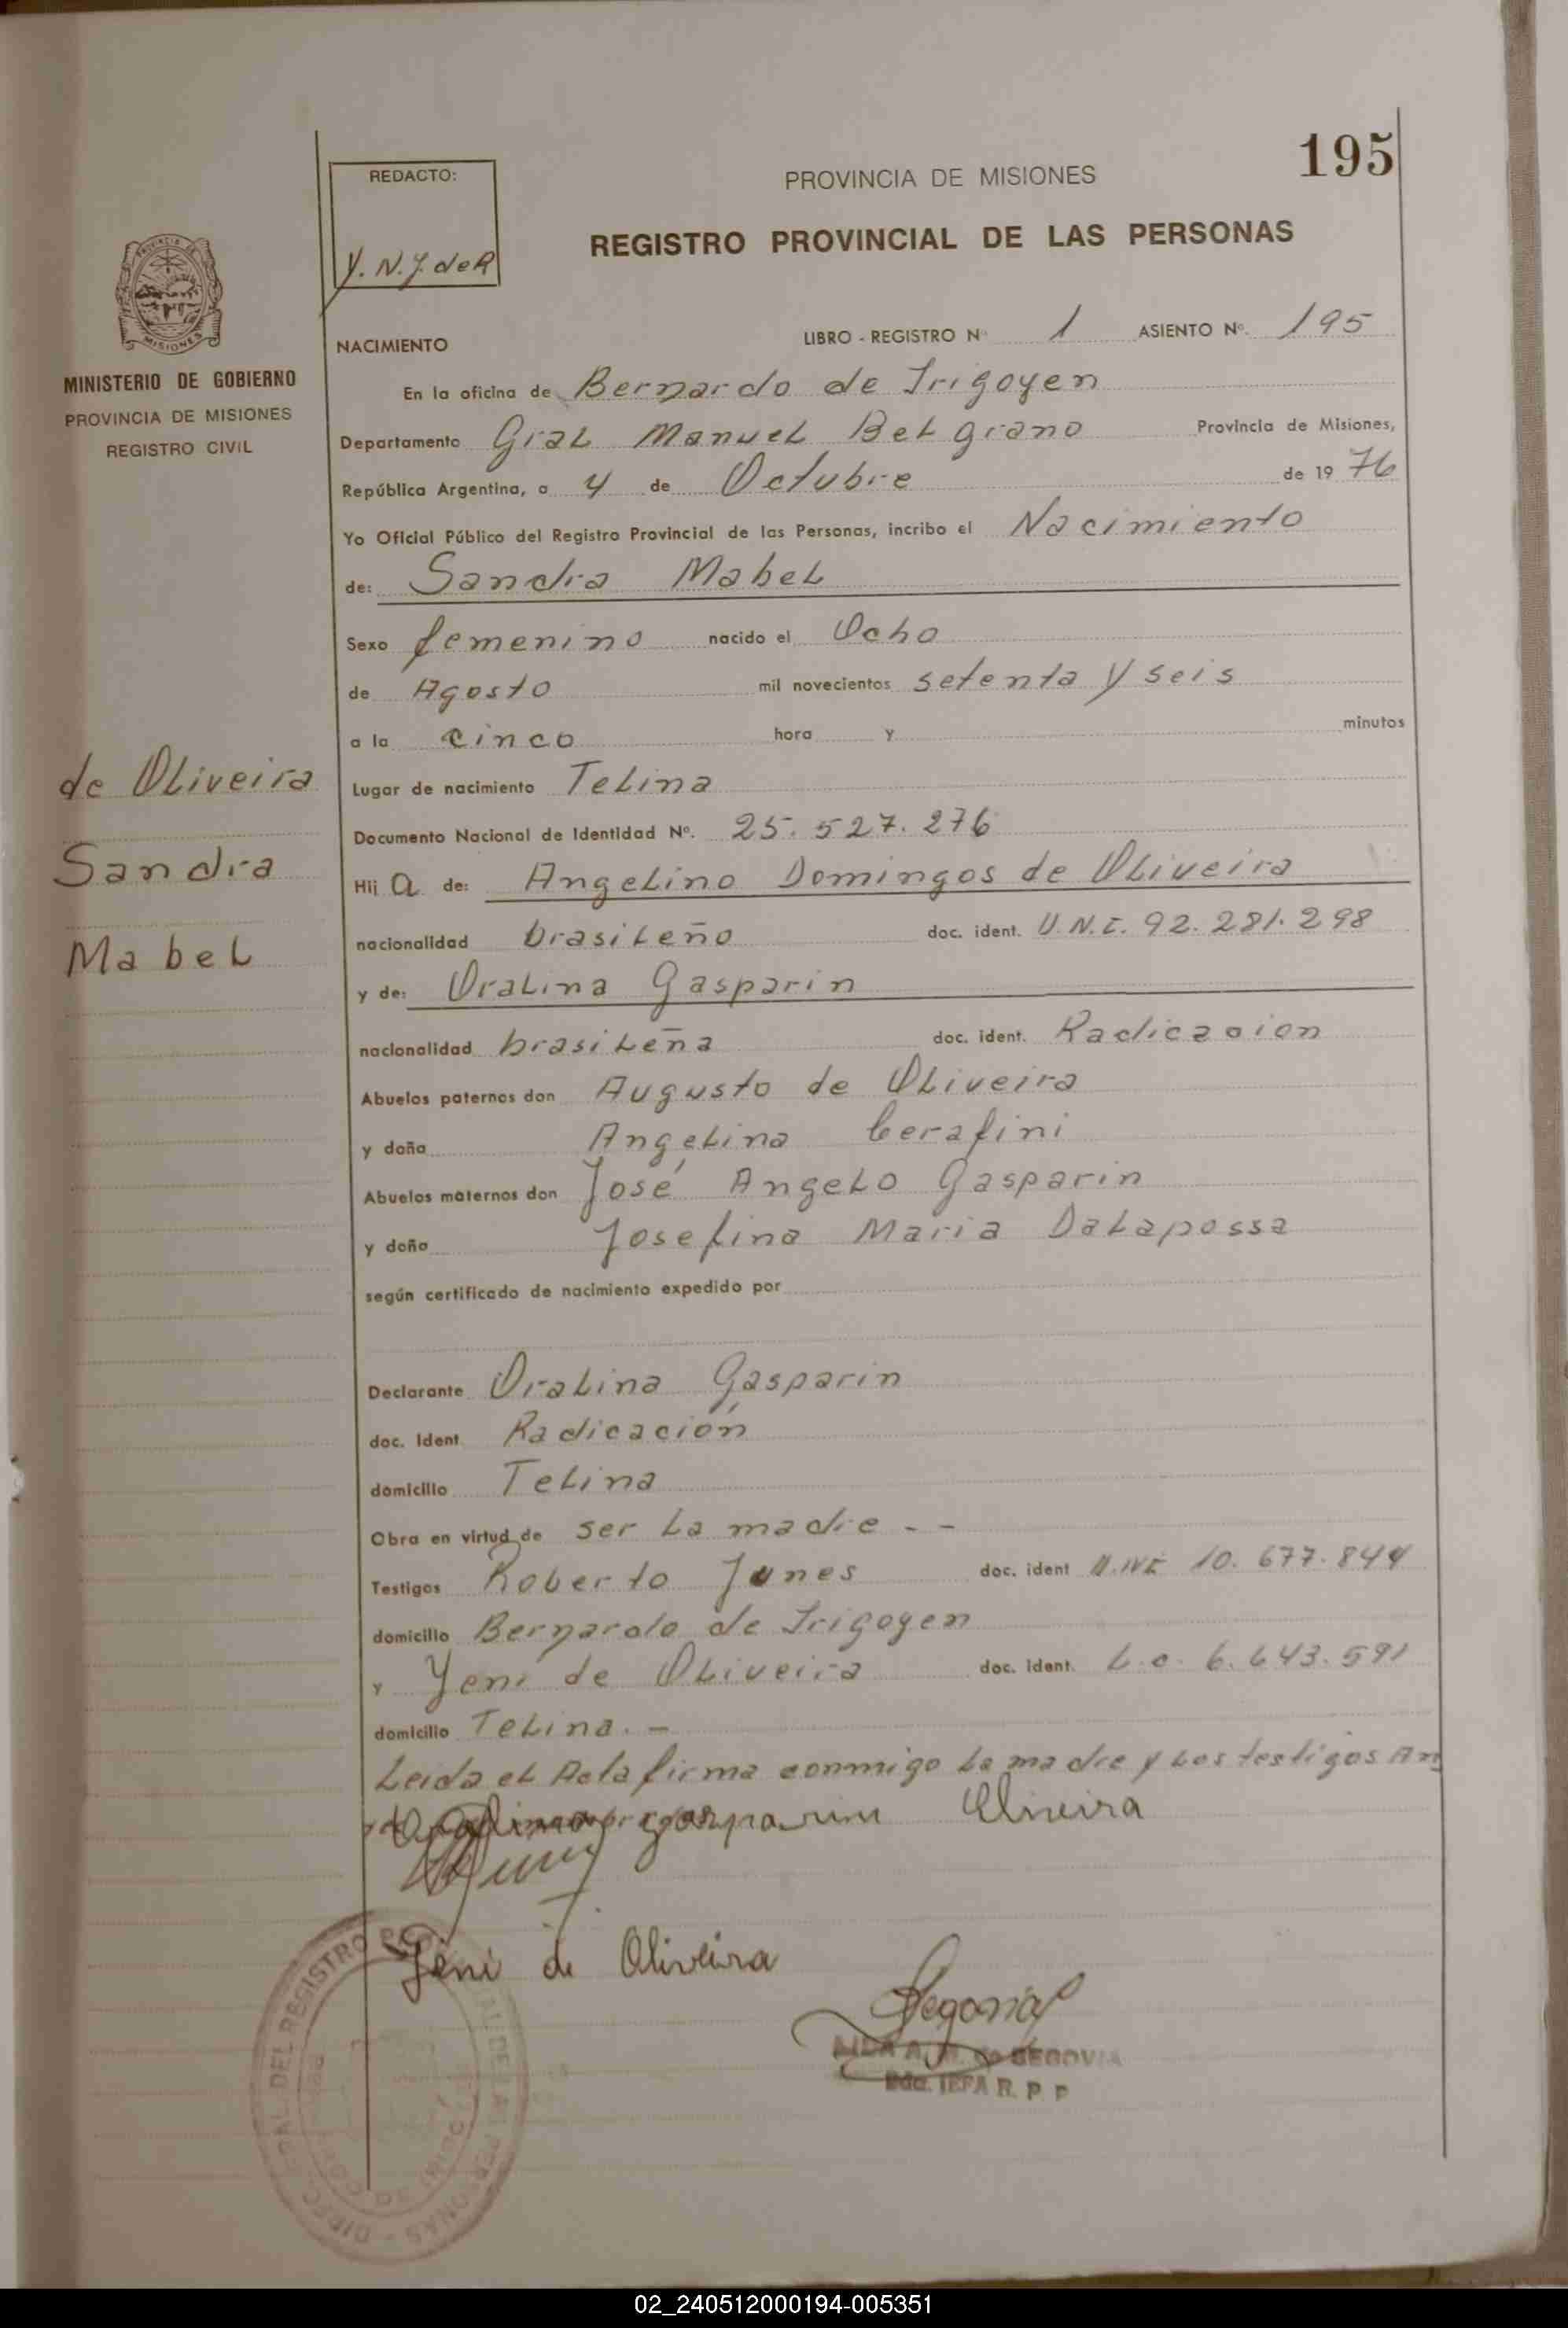 195
REDACTO:
Y. N. J. de R
PROVINCIA DE MISIONES
REGISTRO PROVINCIAL DE LAS PERSONAS
MINISTERIO DE GOBIERNO
PROVINCIA DE MISIONES
REGISTRO CIVIL
NACIMIENTO LIBRO - REGISTRO Nº 1 ASIENTO Nº. 195
En la oficina de Bernardo de Irigoyen
Departamento Gral Manuel Belgrano Provincia de Misiones,
República Argentina, a 4 de Octubre de 1976
Yo Oficial Público del Registro Provincial de las Personas, incribo el Nacimiento
de: Sandra Mabel
Sexo femenino nacido el Ocho
de Agosto mil novecientos setenta y seis
a la cinco hora y minutos
de Oliveira
Sandra
Mabel
Lugar de nacimiento Telina
Documento Nacional de Identidad Nº. 25.527.276
Hij a de: Angelino Domingos de Oliveira
nacionalidad brasileño doc. ident. D.N.I. 92.281.298
y de: Oralina Gasparin
nacionalidad brasileña doc. ident. Radicacion
Abuelos paternos don Augusto de Oliveira
y doña Angelina Cerafini
Abuelos maternos don José Angelo Gasparin
y doña Josefina Maria Dalapossa
según certificado de nacimiento expedido por
Declarante Oralina Gasparin
doc. Ident Radicación
domicilio Telina
Obra en virtud de ser la madre - -
Testigos Roberto Junes doc. ident D.N.I 10.677.844
domicilio Bernardo de Irigoyen
y Yeni de Oliveira doc. ident. L.C. 6.643.591
domicilio Telina. -
Leida el Acta firma conmigo la madre y los testigos An
gasparin Oliveira
Jeni de Oliveira
Segovia
AIDA A. de SEGOVIA
JEFA R. P. P
DEL REGISTRO
02_240512000194-005351